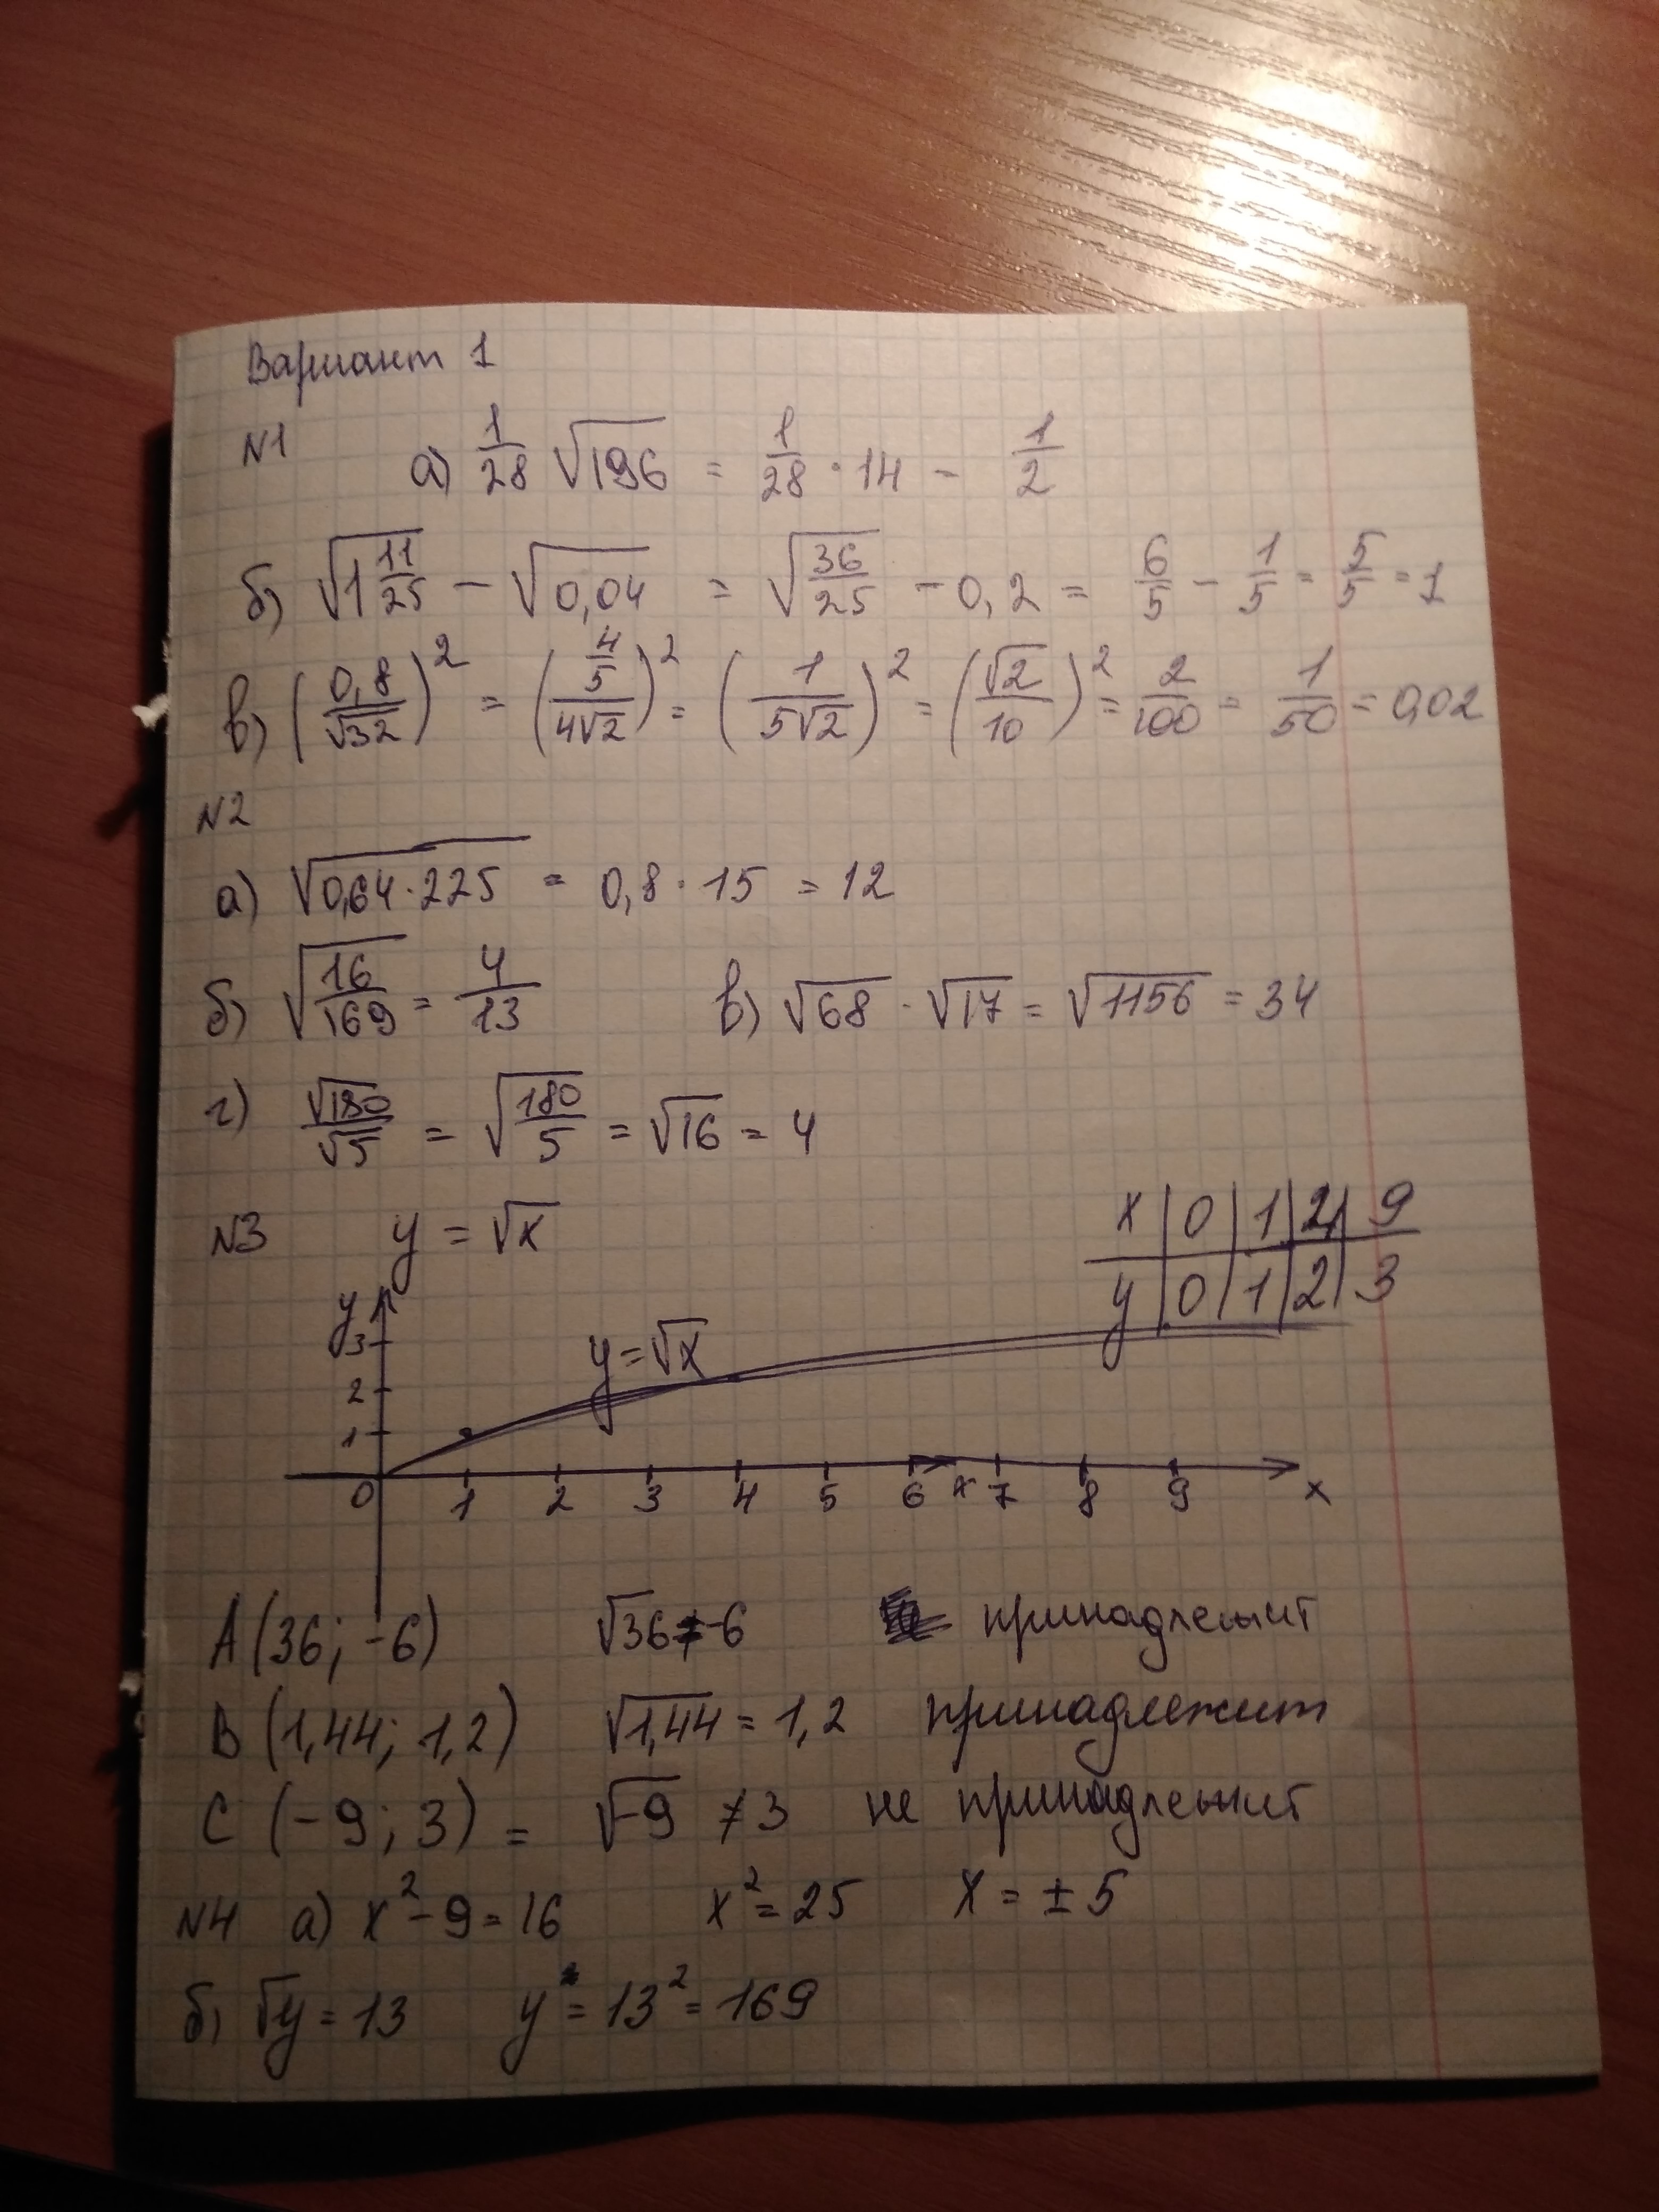 Вариант 1
№1 а) 1/28 √196 = 1/28 · 14 = 1/2
б) √(1 11/25) − √0,04 = √(36/25) − 0,2 = 6/5 − 1/5 = 5/5 = 1
в) (0,8/√32)² = ((4/5)/(4√2))² = (1/(5√2))² = (√2/10)² = 2/100 = 1/50 = 0,02
№2
а) √(0,64 · 225) = 0,8 · 15 = 12
б) √(16/169) = 4/13 в) √68 · √17 = √1156 = 34
г) √180/√5 = √(180/5) = √16 = 4
№3 y = √x
x 0 1 4 9
y 0 1 2 3
y
3
2
1
y = √x
0 1 2 3 4 5 6 x 7 8 9 x
A (36; −6) √36 ≠ −6 принадлежит
B (1,44; 1,2) √1,44 = 1,2 принадлежит
C (−9; 3) = √−9 ≠ 3 не принадлежит
№4 а) x² − 9 = 16 x² = 25 x = ± 5
б) √y = 13 y = 13² = 169